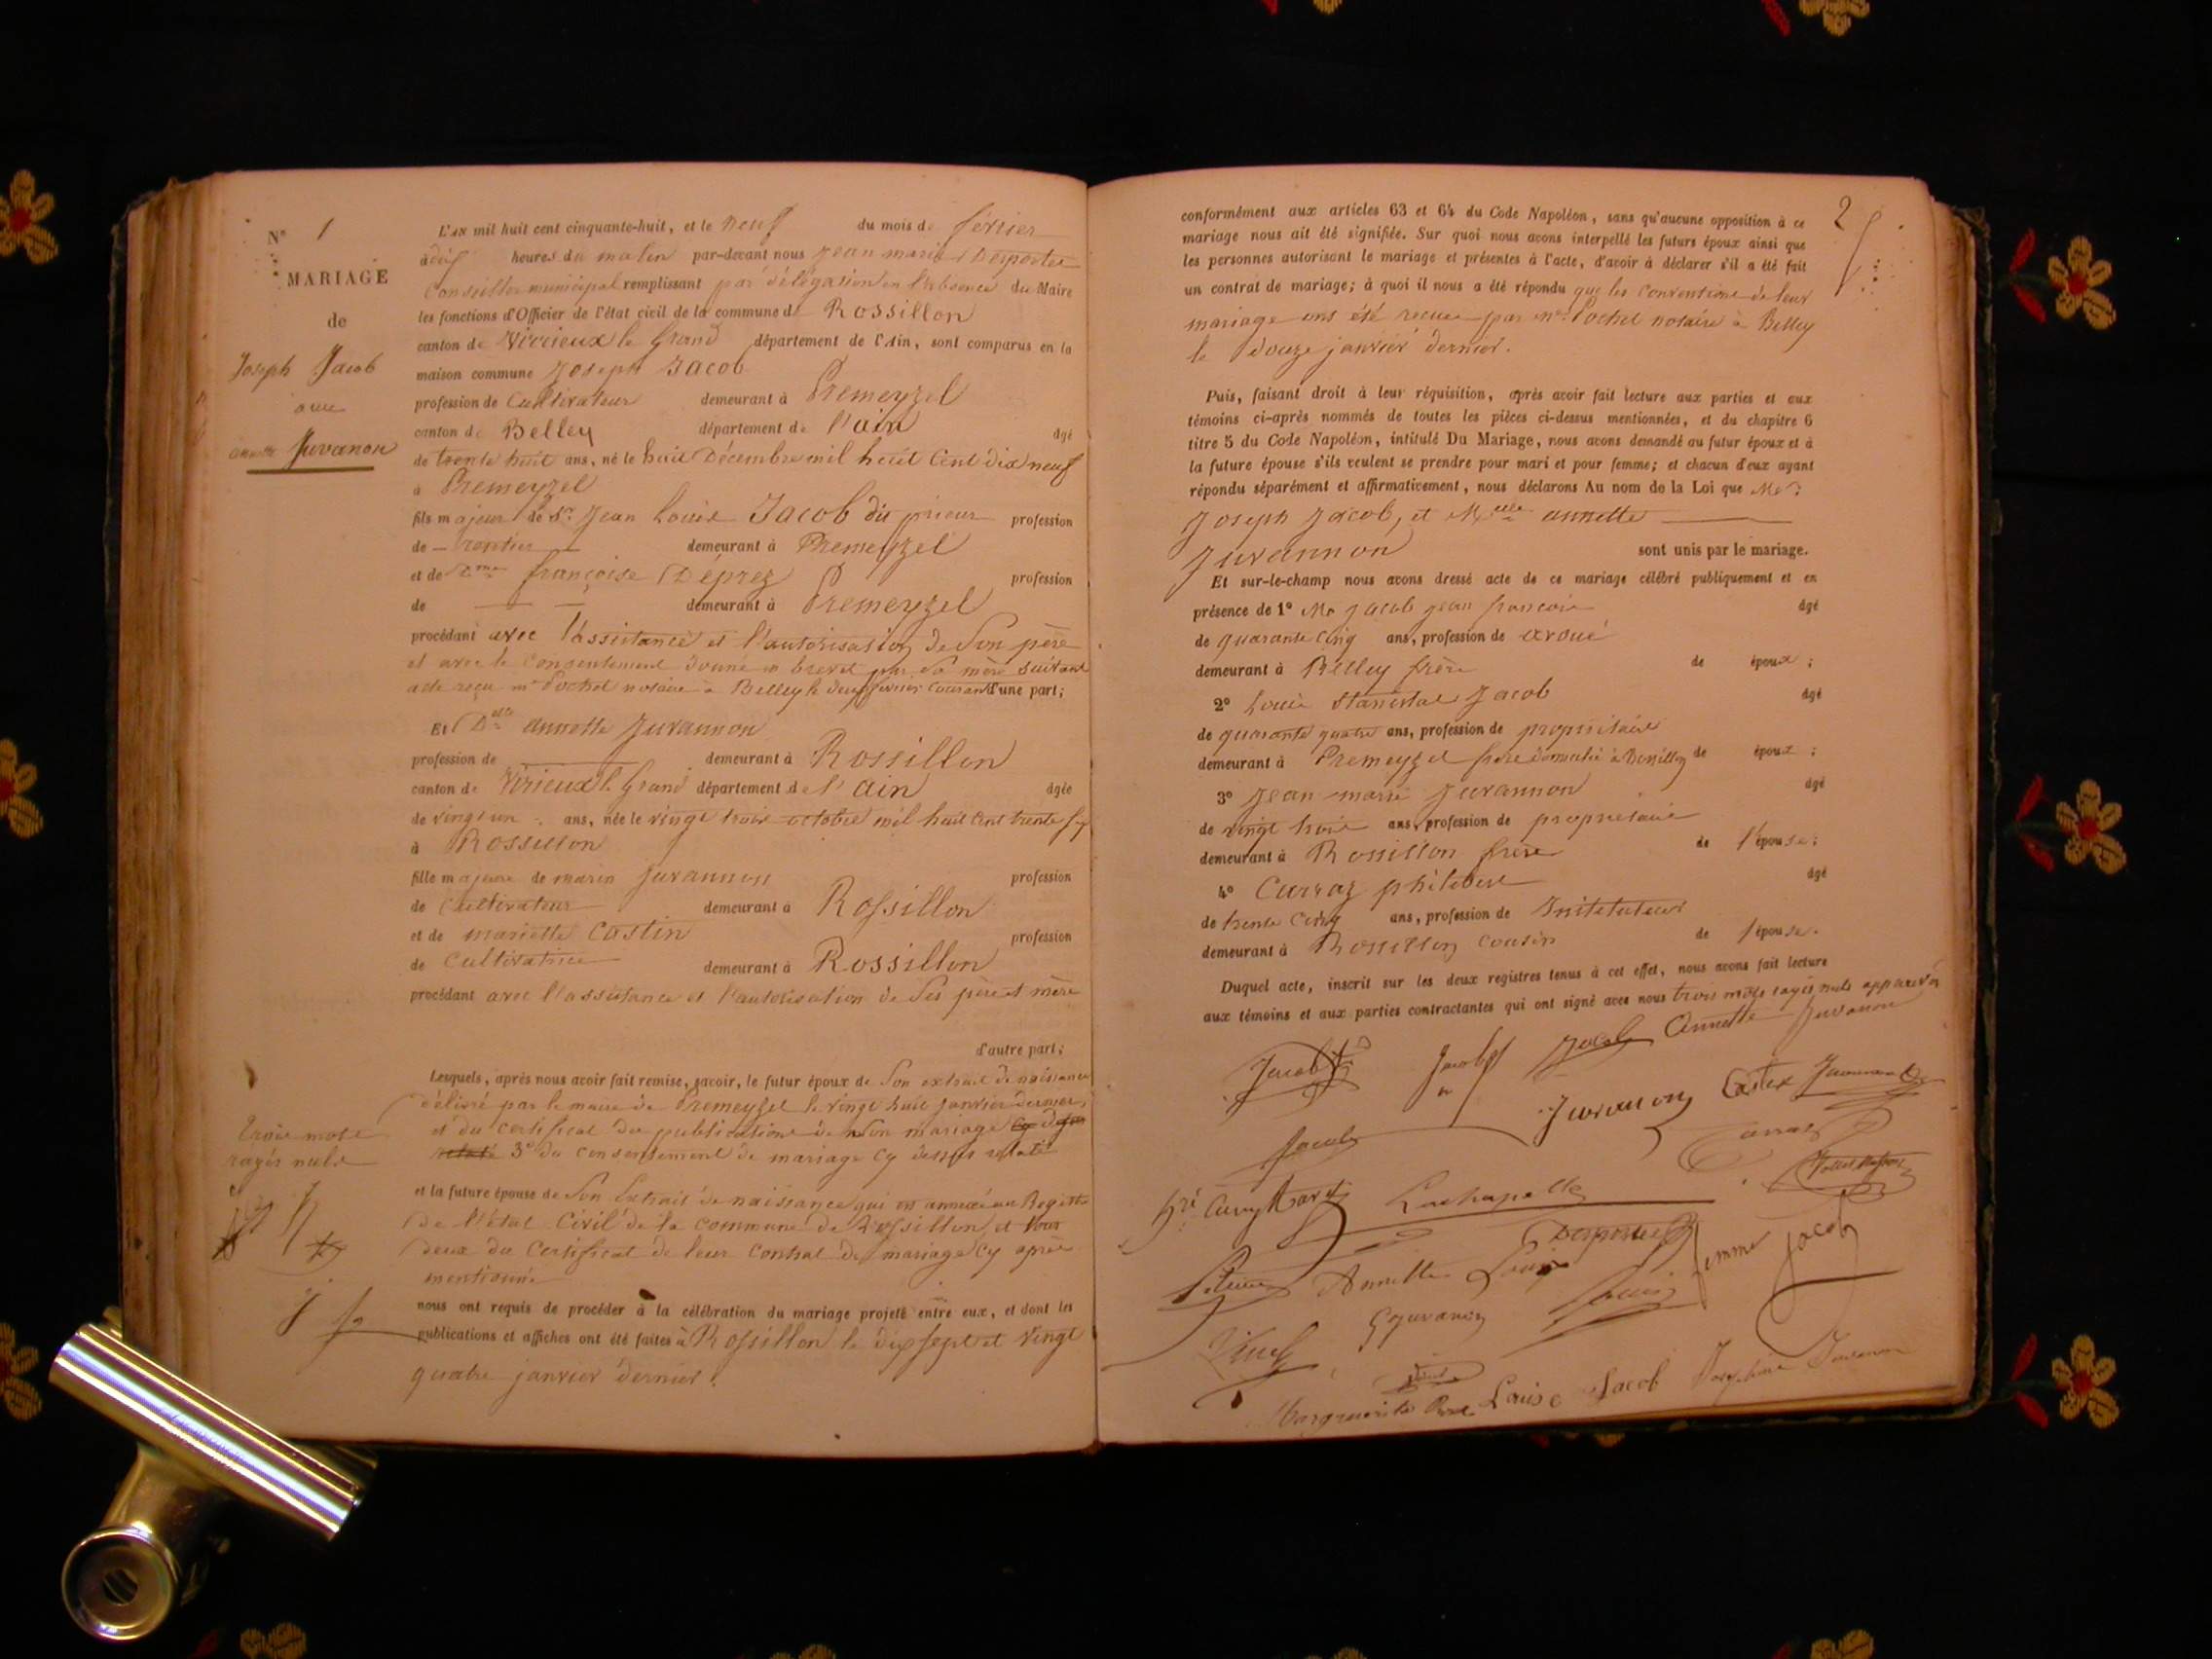 N° 1
MARIAGE
de
Joseph Jacob
avec
annette Juvanon
L'AN mil huit cent cinquante-huit, et le neuf du mois de février
à dix heures du matin par-devant nous jean marie Desportes
Conseiller municipal remplissant par délégation en l'absence du Maire
les fonctions d'Officier de l'état civil de la commune de Rossillon
canton de Virieux le Grand département de l'Ain, sont comparus en la
maison commune Joseph Jacob
profession de Cultivateur demeurant à Premeyzel
canton de Belley département de l'ain âgé
de trente huit ans, né le huit Décembre mil huit Cent dix neuf
à Premeyzel
fils majeur de Sr Jean Louis Jacob dit prieur profession
de rentier demeurant à Premeyzel
et de Dme françoise Déprez profession
de demeurant à Premeyzel
procédant avec l'assistance et l'autorisation de Son père
et avec le Consentement donné en brevet par Sa mère suivant
acte reçu me Pochet notaire à Belley le deux février courant d'une part;
Et Dlle annette Juvannon
profession de demeurant à Rossillon
canton de Virieux le Grand département de l'ain âgée
de vingt un ans, née le vingt trois octobre mil huit Cent trente six
à Rossillon
fille majeure de marin Juvannon profession
de Cultivateur demeurant à Rossillon
et de mariette Castin profession
de Cultivatrice demeurant à Rossillon
procédant avec l'assistance et l'autorisation de Ses père et mère
d'autre part;
Lesquels, après nous avoir fait remise, savoir, le futur époux de Son extrait de naissance
délivré par le maire de Premeyzel le vingt huit janvier dernier,
et du certificat des publications de Son mariage
relaté 3° du Consentement de mariage Cy dessus relaté
trois mots
rayés nuls
et la future épouse de Son Extrait de naissance qui est annexé au Registre
de l'état Civil de la Commune de Rossillon et tous
deux du Certificat de leur Contrat de mariage Cy après
mentionné
nous ont requis de procéder à la célébration du mariage projeté entre eux, et dont les
publications et affiches ont été faites à Rossillon le dix sept et vingt
quatre janvier dernier.
2
conformément aux articles 63 et 64 du Code Napoléon, sans qu'aucune opposition à ce
mariage nous ait été signifiée. Sur quoi nous avons interpellé les futurs époux ainsi que
les personnes autorisant le mariage et présentes à l'acte, d'avoir à déclarer s'il a été fait
un contrat de mariage; à quoi il nous a été répondu que les Conventions de leur
mariage ont été reçues par me Pochet notaire à Belley
le douze janvier dernier.
Puis, faisant droit à leur réquisition, après avoir fait lecture aux parties et aux
témoins ci-après nommés de toutes les pièces ci-dessus mentionnées, et du chapitre 6
titre 5 du Code Napoléon, intitulé Du Mariage, nous avons demandé au futur époux et à
la future épouse s'ils veulent se prendre pour mari et pour femme; et chacun d'eux ayant
répondu séparément et affirmativement, nous déclarons Au nom de la Loi que Mr
Joseph Jacob, et Melle annette
Juvannon sont unis par le mariage.
Et sur-le-champ nous avons dressé acte de ce mariage célébré publiquement et en
présence de 1° Mr Jacob jean françois âgé
de quarante Cinq ans, profession de avoué
demeurant à Belley frère de époux;
2° Louis Stanislas Jacob âgé
de quarante quatre ans, profession de propriétaire
demeurant à Premeyzel frère domicilié à Rossillon de époux;
3° Jean marie Juvannon âgé
de vingt trois ans, profession de propriétaire
demeurant à Rossillon frère de l'épouse;
4° Carraz philibert âgé
de trente Cinq ans, profession de Instituteur
demeurant à Rossillon Cousin de l'épouse.
Duquel acte, inscrit sur les deux registres tenus à cet effet, nous avons fait lecture
aux témoins et aux parties contractantes qui ont signé avec nous trois mots rayés nuls approuvés
Jacob Jacob Jacob Annette Juvanon
Juvanon
Jacob Carraz
Lachapelle
Desportes
Annette Louise femme Jacob
Marguerite Louise Jacob Joséphine Juvanon